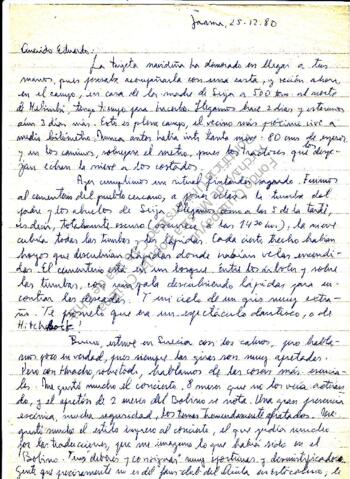 Jaama, 25-12-80
Querido Eduardo:
La tarjeta navideña ha demorado en llegar a tus
manos, pues pensaba acompañarla con una carta, y recién ahora,
en el campo, en casa de la madre de Seija a 500 kms. al norte
de Helsinki, tengo tiempo para hacerlo. Llegamos hace 2 días y estaremos
aún 3 días más. Este es pleno campo, el vecino más próximo vive a
medio kilómetro. Nunca antes había visto tanta nieve: 80 cms. de espesor
y en los caminos, sobrepasa el metro, pues los tractores que los despe-
jan echan la nieve a los costados.
Ayer cumplimos un ritual finlandés sagrado. Fuimos
al cementerio del pueblo cercano, a poner velas a la tumba del
padre y los abuelos de Seija. Llegamos como a las 5 de la tarde,
es decir, totalmente oscuro (oscurece a las 14.30 hrs.), la nieve
cubría todas las tumbas y las lápidas. Cada cierto trecho habían
hoyos que descubrían lápidas donde habían velas encendi-
das. El cementerio está en un bosque. Entre los árboles y sobre
las tumbas, con una pala descubriendo lápidas para en-
contrar las deseadas. Y un cielo de un gris muy extra-
ño. Te prometo que era un espectáculo dantesco, o de
Hitchcock!
Bueno, estuve en Suecia con los cabros, pero habla-
mos poco en verdad, pues siempre las giras son muy apretadas.
Pero con Horacio, sobretodo, hablamos de las cosas más esencia-
les. Me gustó mucho el concierto, 8 meses que no los veía actuan-
do, y el efecto de 2 meses del Bobino se nota. Una gran presencia
escénica, mucha seguridad, los temas tremendamente apretados. Me
gustó mucho el estilo impreso al concierto, el que pudiu mucho
por las traducciones, pero me imagino lo que habrá sido en el
Bobino. "Tus deberes y consignas" muy oportunas, y desmitificadoras.
Gente que precisamente no es del fans-club del Quila en esta colonia, le